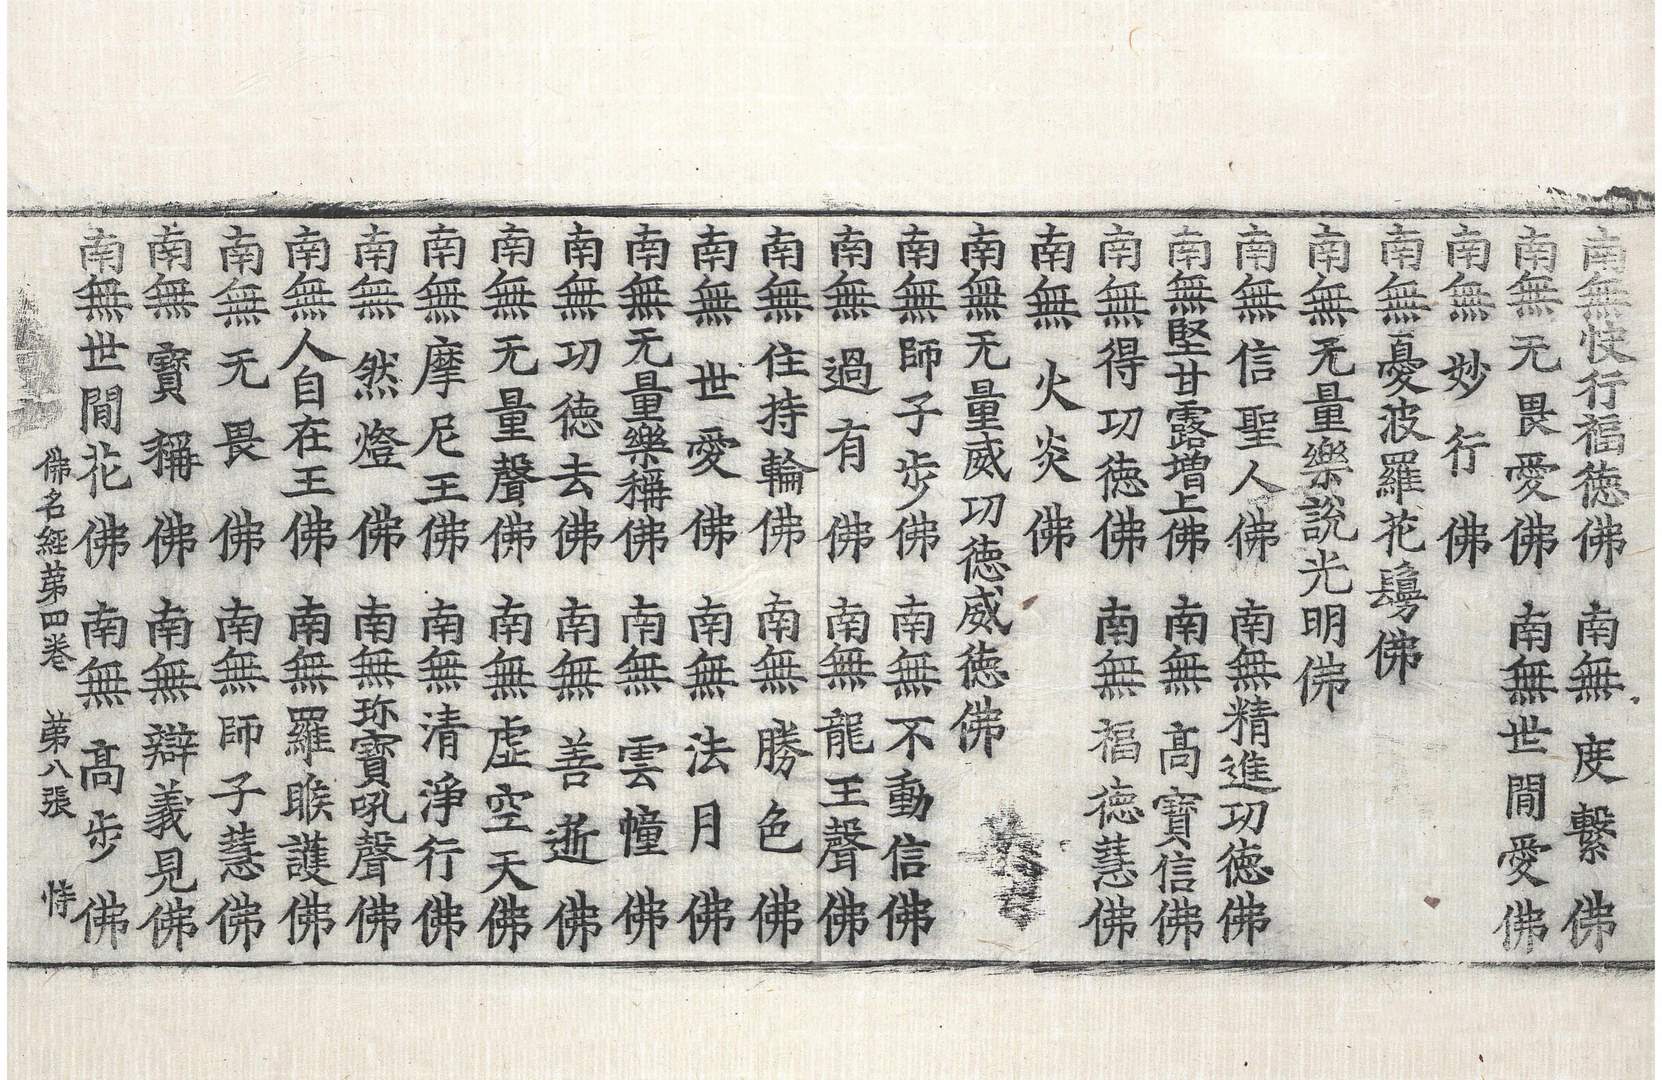 南無快行福德佛 南無度繫佛
南無无畏愛佛 南無世間愛佛
南無妙行佛
南無憂波羅花鬘佛
南無无量樂說光明佛
南無信聖人佛 南無精進功德佛
南無堅甘露增上佛 南無高寶信佛
南無得功德佛 南無福德慧佛
南無火炎佛
南無无量威功德威德佛
南無師子步佛 南無不動信佛
南無過有佛 南無龍王聲佛
南無住持輪佛 南無勝色佛
南無世愛佛 南無法月佛
南無无量樂稱佛 南無雲幢佛
南無功德去佛 南無善逝佛
南無无量聲佛 南無虛空天佛
南無摩尼王佛 南無清淨行佛
南無然燈佛 南無珎寶吼聲佛
南無人自在王佛 南無羅睺護佛
南無无畏佛 南無師子慧佛
南無寶稱佛 南無辯義見佛
南無世間花佛 南無高步佛
佛名經苐四卷 苐八張 恃